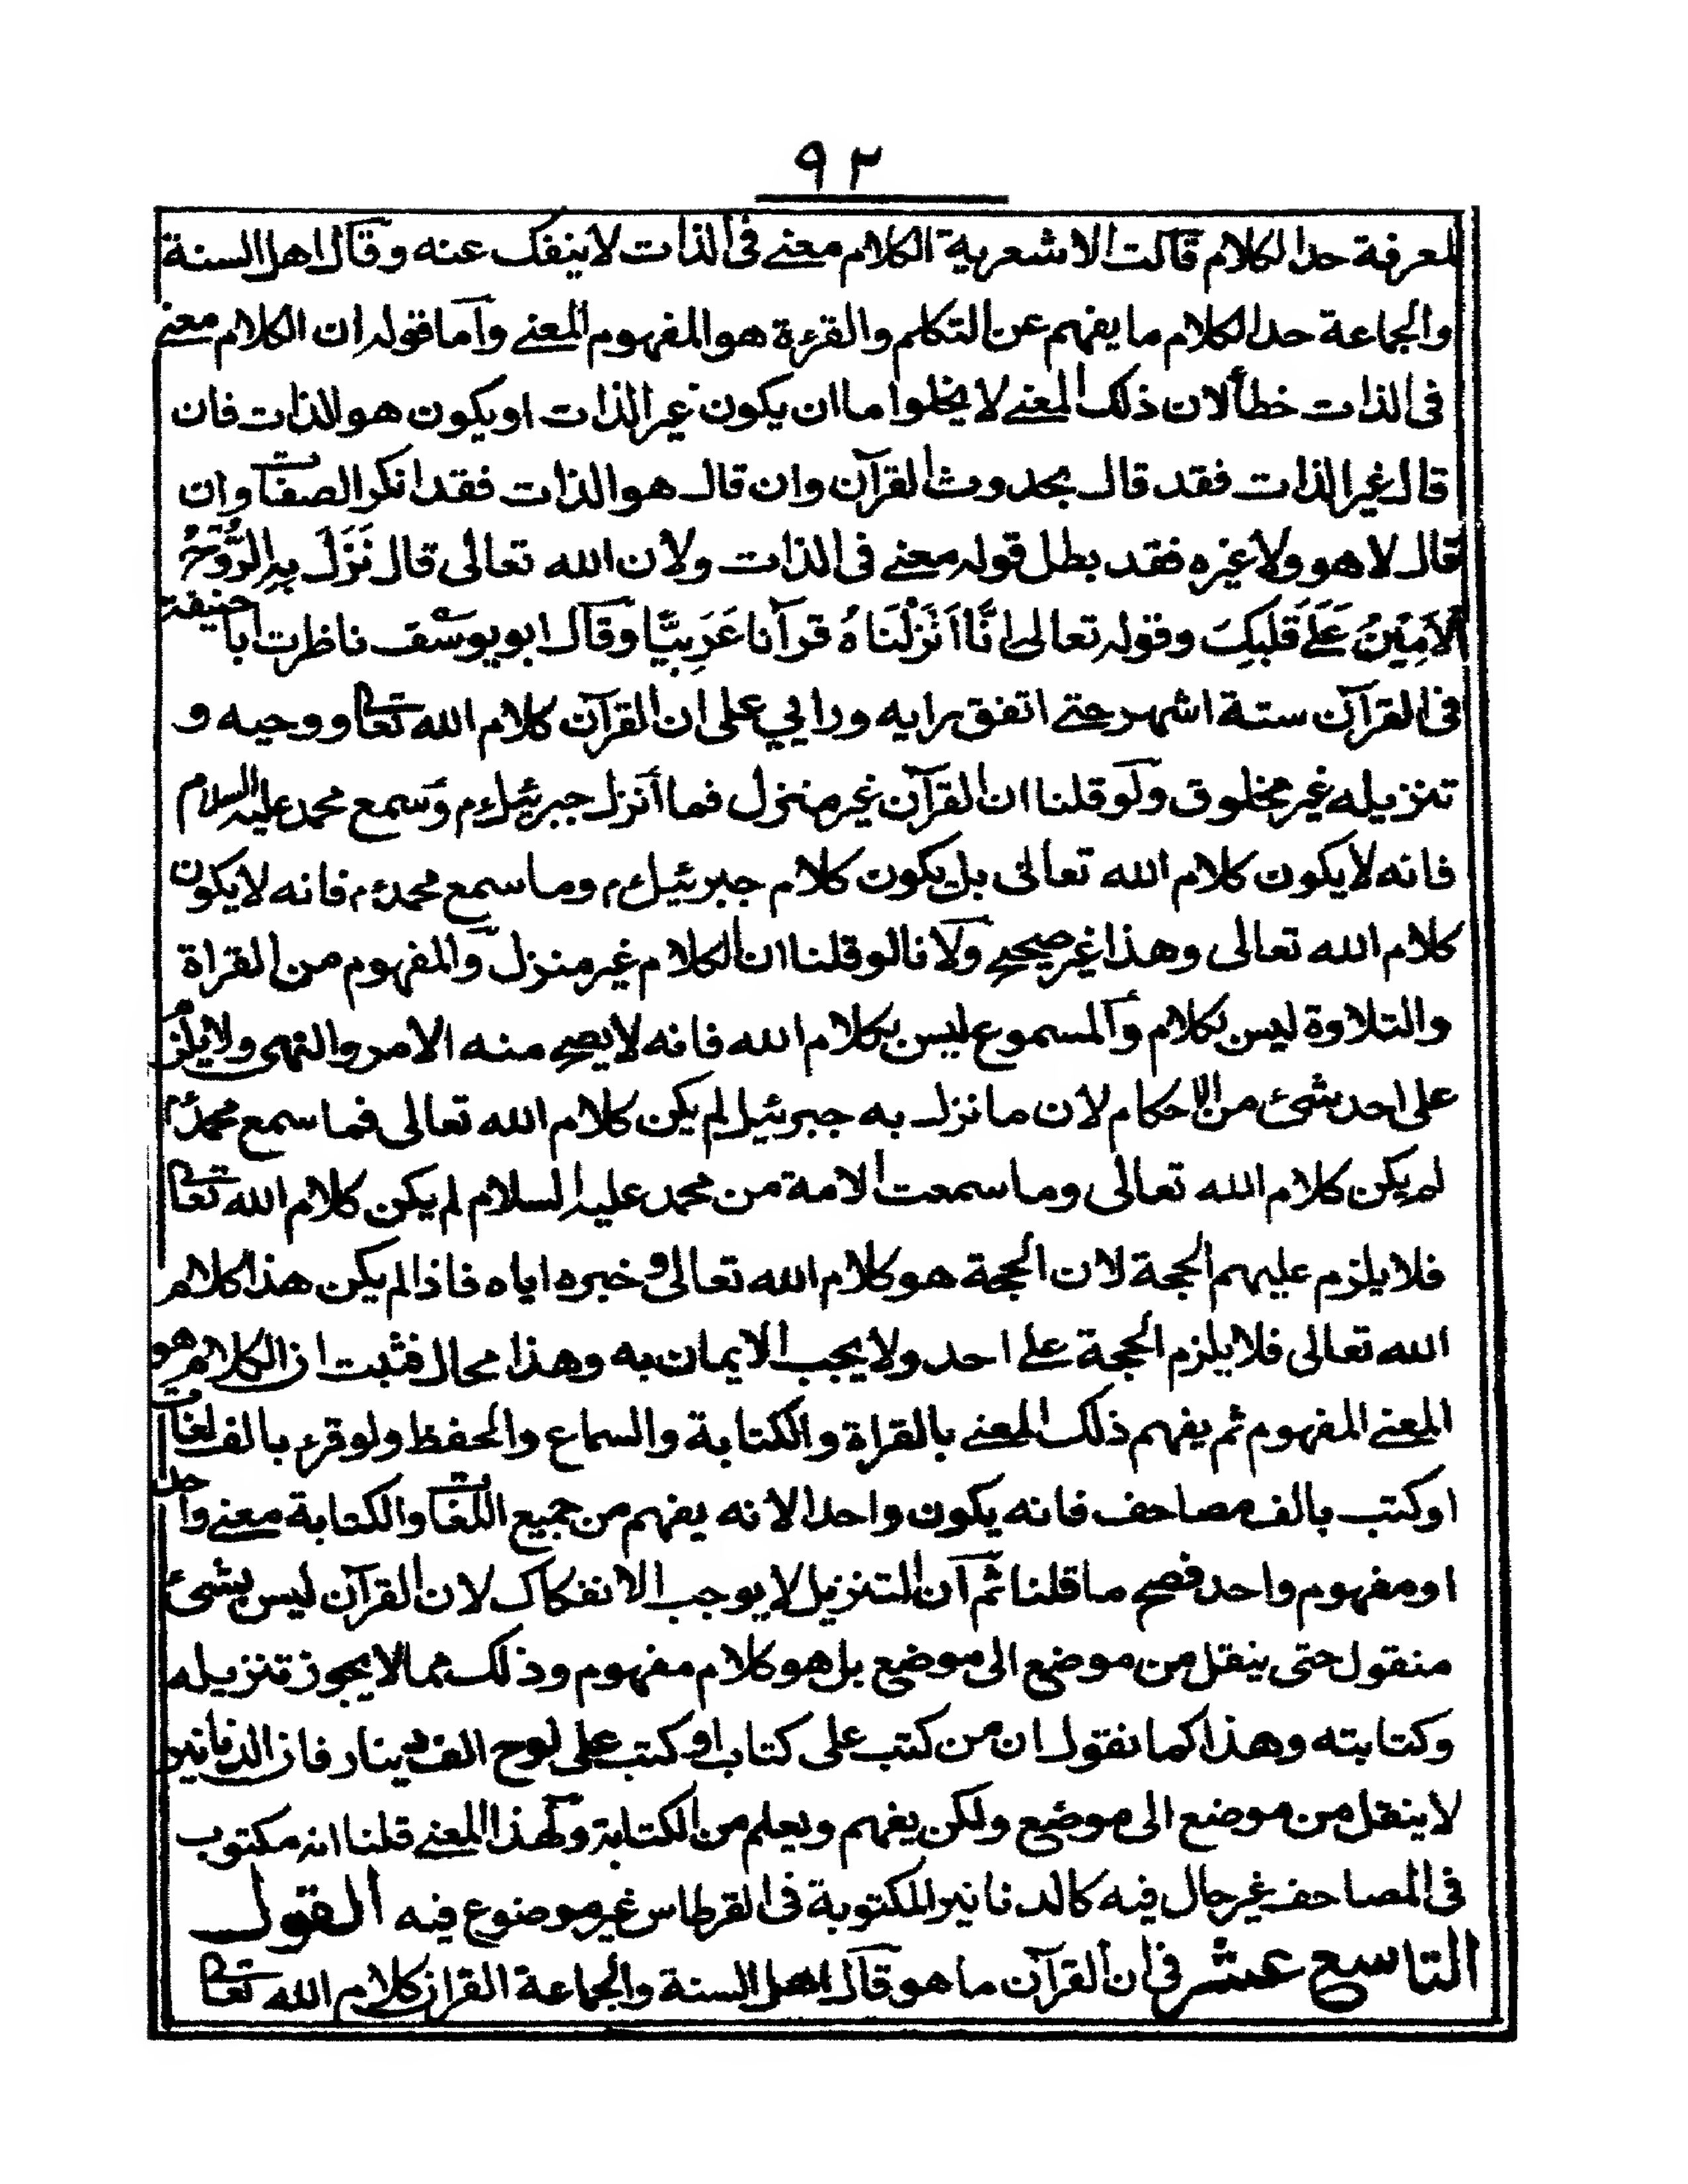 ٩٢
لمعرفة حد الكلام قالت الاشعرية الكلام معنى فى الذات لا ينفك عنه وقال اهل السنة
والجماعة حد الكلام ما يفهم عن التكلم والقرءة هو المفهوم المعنى واما قوله ان الكلام معنى
فى الذات خطأ لان ذلك المعنى لا يخلوا ما ان يكون غير الذات او يكون هو الذات فان
قال غير الذات فقد قال بحدوث القرآن وان قال هو الذات فقد انكر الصفات وان
قال لا هو ولا غيره فقد بطل قوله معنى فى الذات ولان الله تعالى قال نَزَلَ بِهِ الرُّوْحُ
الْاَمِيْنُ عَلَى قَلْبِكَ وقوله تعالى اِنَّا اَنْزَلْنَاهُ قرآنا عَرَبِيًّا وقال ابو يوسف ناظرت ابا حنيفة
فى القرآن ستة اشهر حتى اتفق رايه ورايي على ان القرآن كلام الله تعالى ووحيه و
تنزيله غير مخلوق ولو قلنا ان القرآن غير منزل فما أنزل جبرئيل ؑم وسمع محمد عليه السلام
فانه لا يكون كلام الله تعالى بل يكون كلام جبرئيل ؑم وما سمع محمد ؑم فانه لا يكون
كلام الله تعالى وهذا غير صحيح ولانا لو قلنا ان الكلام غير منزل والمفهوم من القراة
والتلاوة ليس بكلام والمسموع ليس بكلام الله فانه لا يصح منه الامر والنهى ولا يلزم
على احد شئ من الاحكام لان ما نزل به جبرئيل لم يكن كلام الله تعالى فما سمع محمد ؑم
لم يكن كلام الله تعالى وما سمعت الامة من محمد عليه السلام لم يكن كلام الله تعالى
فلا يلزم عليهم الحجة لان الحجة هو كلام الله تعالى وخبره اياه فاذا لم يكن هذا كلام
الله تعالى فلا يلزم الحجة على احد ولا يجب الايمان به وهذا محال فثبت ان الكلام هو
المعنى المفهوم ثم يفهم ذلك المعنى بالقراة والكتابة والسماع والحفظ ولو قرء بالف لغات
او كتب بالف مصاحف فانه يكون واحدا لانه يفهم من جميع اللغات والكتابة معنى واحد
او مفهوم واحد فصح ما قلنا ثم ان التنزيل لا يوجب الانفكاك لان القرآن ليس بشئ
منقول حتى ينقل من موضع الى موضع بل هو كلام مفهوم وذلك مما لا يجوز تنزيله
وكتابته وهذا كما نقول ان من كتب على كتاب او كتب على لوح الف دينار فان الدنانير
لا ينقل من موضع الى موضع ولكن يفهم ويعلم من الكتابة ولهذا المعنى قلنا انه مكتوب
فى المصاحف غير حال فيه كالدنانير المكتوبة فى القرطاس غير موضوع فيه القول
التاسع عشر فى ان القرآن ما هو قال اهل السنة والجماعة القران كلام الله تعالى